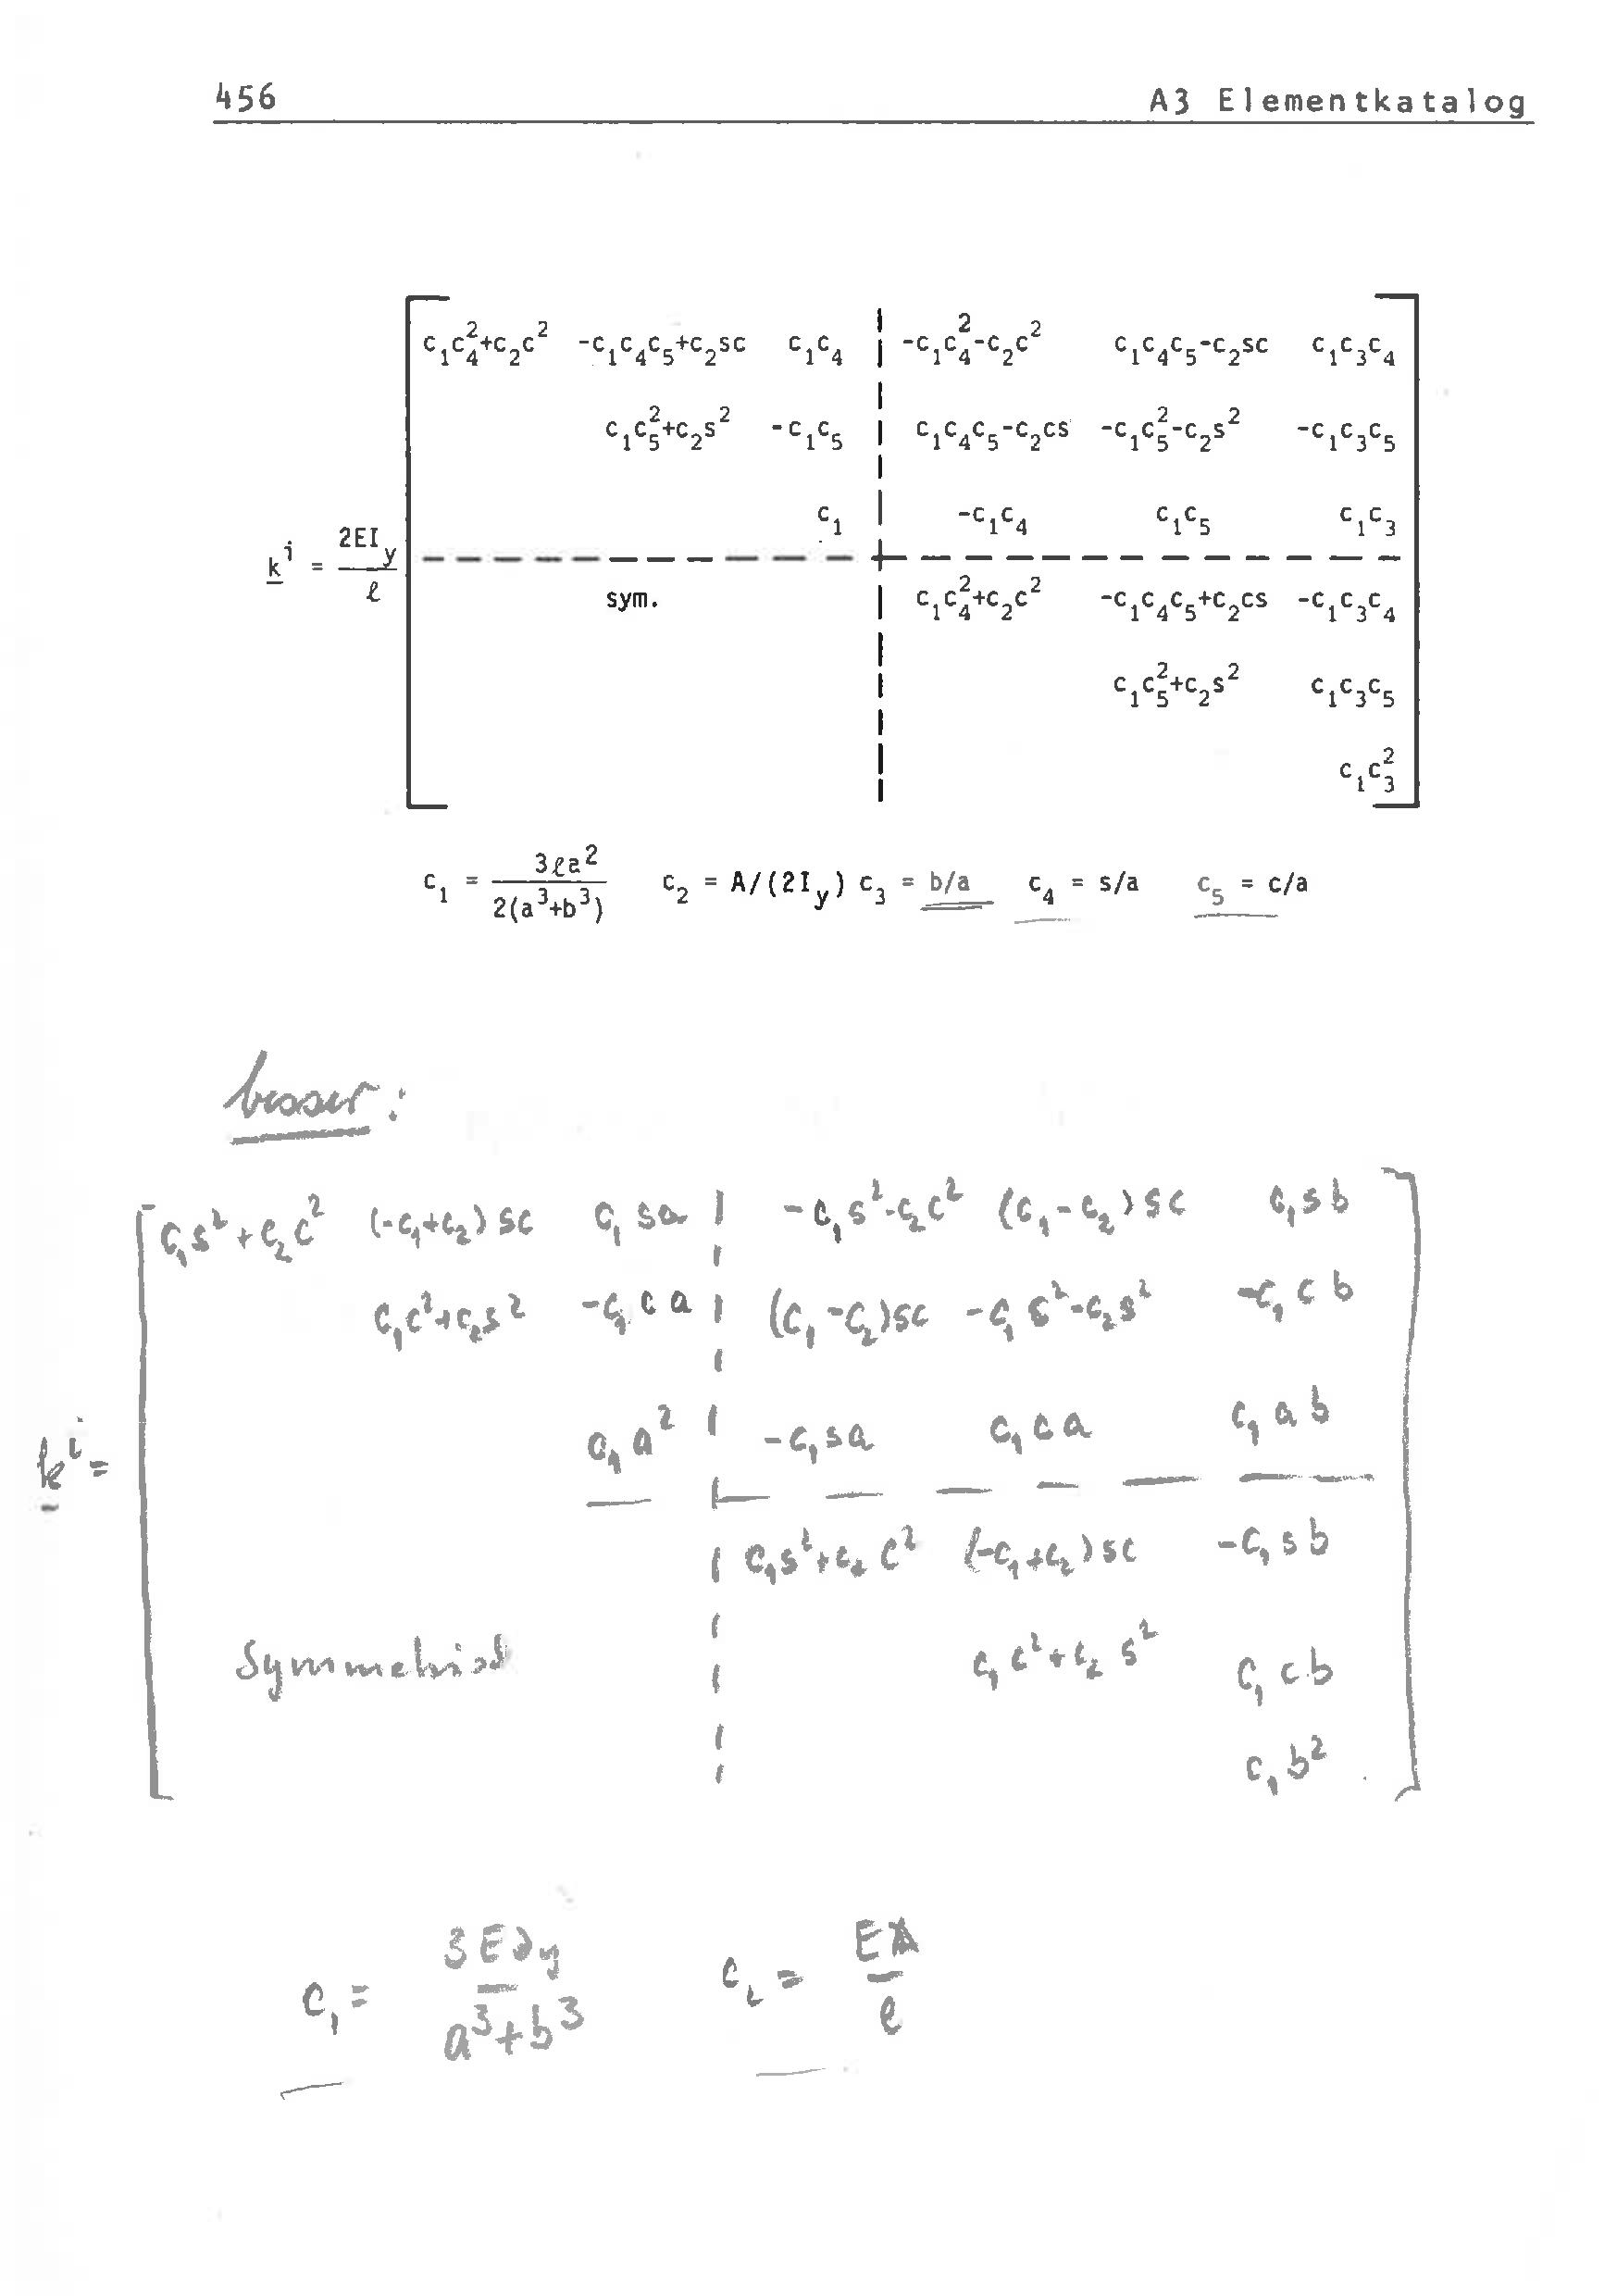 456 A3 Elementkatalog
c₁c₄²+c₂c² -c₁c₄c₅+c₂sc c₁c₄ -c₁c₄²-c₂c² c₁c₄c₅-c₂sc c₁c₃c₄
c₁c₅²+c₂s² -c₁c₅ c₁c₄c₅-c₂cs -c₁c₅²-c₂s² -c₁c₃c₅
c₁ -c₁c₄ c₁c₅ c₁c₃
kⁱ = 2EI_y/ℓ
sym. c₁c₄²+c₂c² -c₁c₄c₅+c₂cs -c₁c₃c₄
c₁c₅²+c₂s² c₁c₃c₅
c₁c₃²
c₁ = 3ℓa²/2(a³+b³) c₂ = A/(2I_y) c₃ = b/a c₄ = s/a c₅ = c/a
besser:
c₁s²+c₂c² (-c₁+c₂)sc c₁sa -c₁s²-c₂c² (c₁-c₂)sc c₁sb
c₁c²+c₂s² -c₁ca (c₁-c₂)sc -c₁s²-c₂s² -c₁cb
c₁a² -c₁sa c₁ca c₁ab
kⁱ=
c₁s²+c₂c² (-c₁+c₂)sc -c₁sb
Symmetrisch c₁c²+c₂s² c₁cb
c₁b²
c₁= 3EJ_y/a³+b³ c₂= EA/ℓ